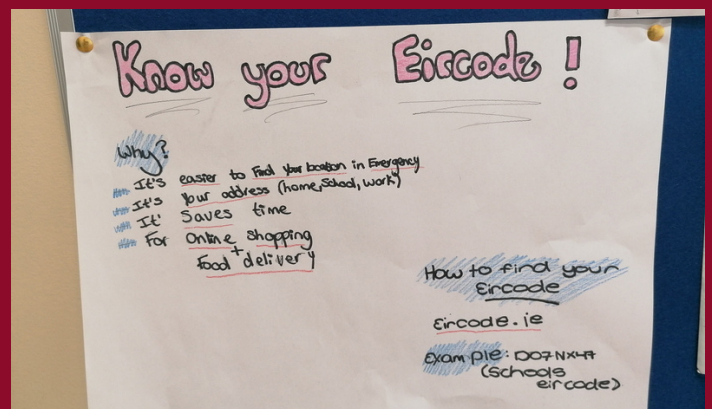 Know your Eircode !
Why?
It's easier to Find Your location in Emergency
It's Your address (home, School, work)
It' Saves time
For Online Shopping
+
Food delivery
How to find your
Eircode
Eircode.ie
Example: D07NX47
(Schools
eircode)